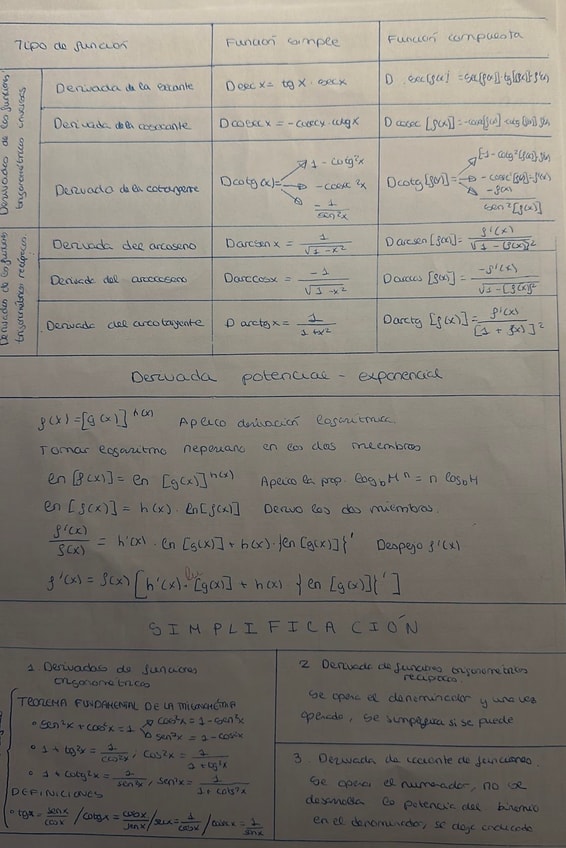 Tipo de función
Función simple
Función compuesta
Derivadas de las funciones trigonométricas inversas
Derivada de la secante
D sec x = tg x · sec x
D sec[f(x)] = sec[f(x)]·tg[f(x)]·f'(x)
Derivada de la cosecante
D cosec x = -cosec x · cotg x
D cosec [f(x)] = -cosec[f(x)] · cotg [f(x)] · f'(x)
Derivada de la cotangente
D cotg(x) =
-1 - cotg²x
- cosec²x
- 1/sen²x
D cotg[f(x)] =
[-1 - cotg²[f(x)]]·f'(x)
- cosec²[f(x)]·f'(x)
-f'(x)/sen²[f(x)]
Derivadas de las funciones trigonométricas recíprocas
Derivada del arcoseno
D arcsen x = 1/√1-x²
D arcsen [f(x)] = f'(x)/√1-[f(x)]²
Derivada del arcocoseno
D arccos x = -1/√1-x²
D arccos [f(x)] = -f'(x)/√1-[f(x)]²
Derivada del arcotangente
D arctg x = 1/1+x²
D arctg [f(x)] = f'(x)/[1 + f(x)]²
Derivada potencial - exponencial
f(x) = [g(x)]^h(x) Aplico derivación logarítmica
Tomar logaritmo neperiano en los dos miembros
ln [f(x)] = ln [g(x)]^h(x) Aplico la prop. log_b M^n = n log_b M
ln [f(x)] = h(x) · ln[g(x)] Derivo los dos miembros.
f'(x)/f(x) = h'(x) · ln [g(x)] + h(x) · {ln [g(x)]}' Despejo f'(x)
f'(x) = f(x) [h'(x) · ln [g(x)] + h(x) · {ln [g(x)]}']
SIMPLIFICACIÓN
1. Derivadas de funciones
trigonométricas
TEOREMA FUNDAMENTAL DE LA TRIGONOMETRÍA
° sen²x + cos²x = 1
cos²x = 1 - sen²x
sen²x = 1 - cos²x
° 1 + tg²x = 1/cos²x ; cos²x = 1/1+tg²x
° 1 + cotg²x = 1/sen²x ; sen²x = 1/1+cotg²x
DEFINICIONES
° tgx = senx/cosx / cotgx = cosx/senx / secx = 1/cosx / cosecx = 1/senx
2. Derivada de funciones trigonométricas
recíprocas.
Se opera el denominador y una vez
operado, se simplifica si se puede
3. Derivada de cociente de funciones.
Se opera el numerador, no se
desarrolla la potencia del binomio
en el denominador, se deja indicado